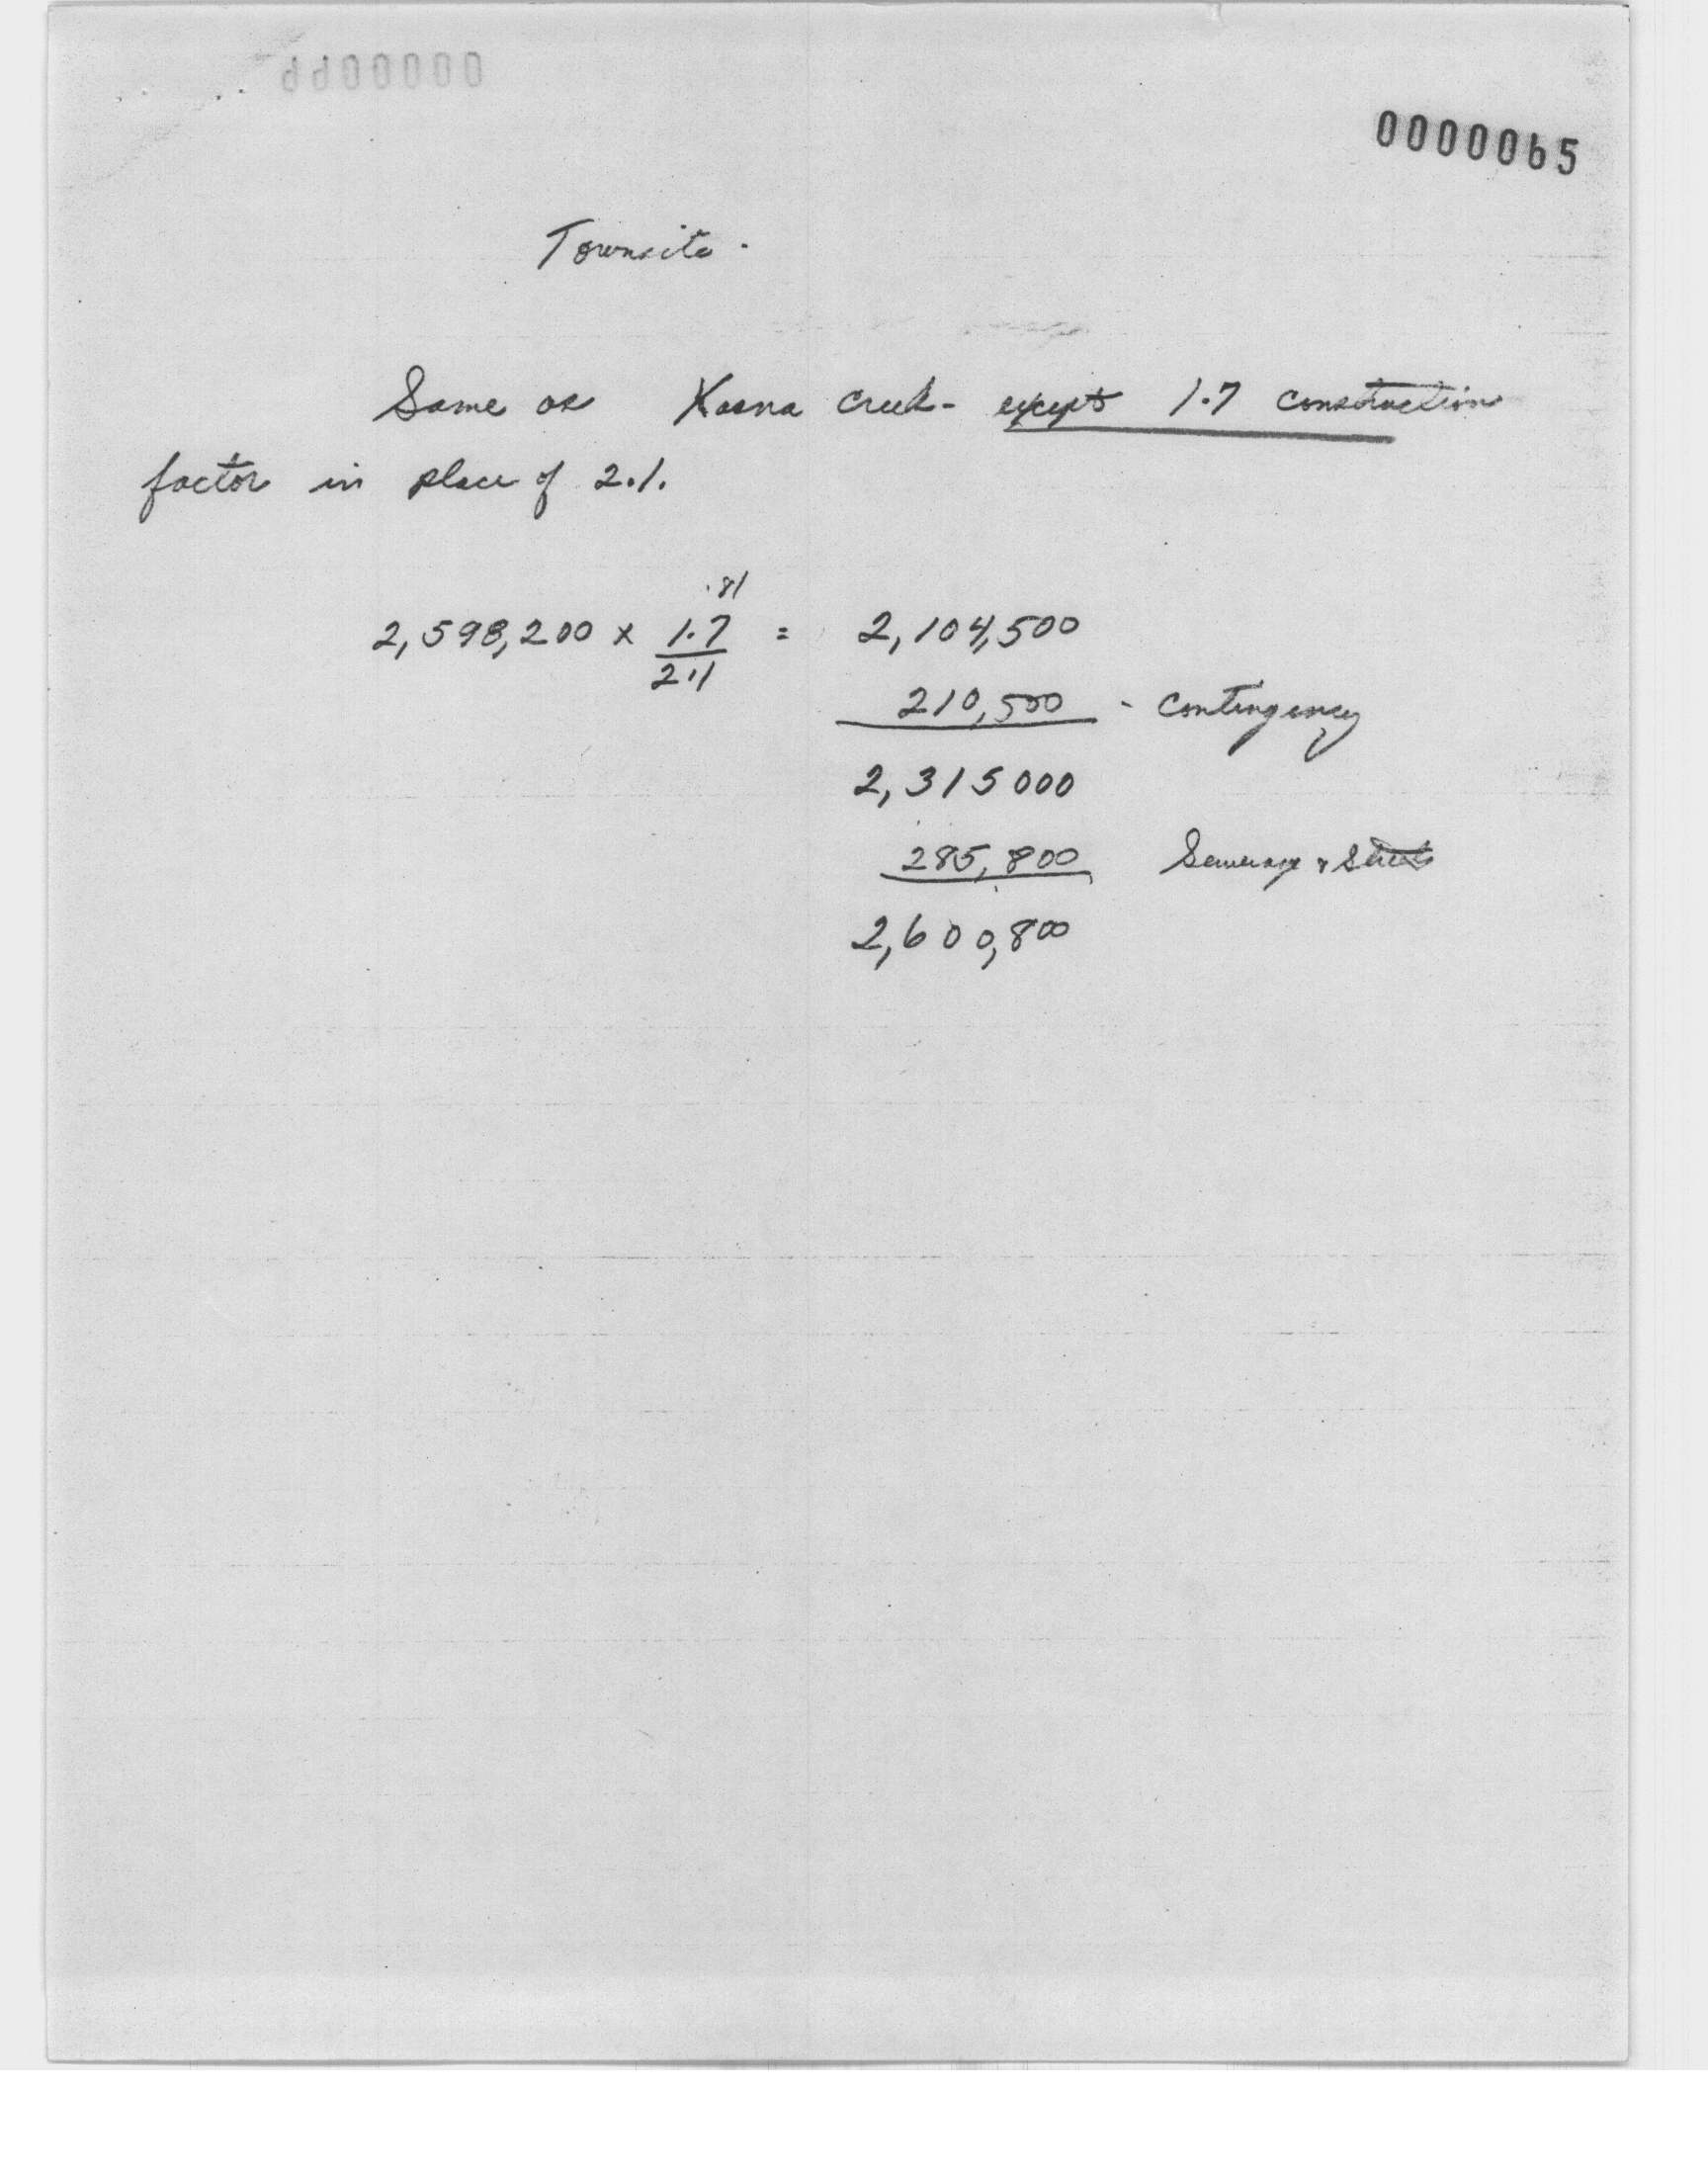 0000065
Townsite.
Same as Kasna Creek - except 1.7 construction
factor in place of 2.1.
.81
2,598,200 x 1.7 = 2,104,500
2.1
210,500 - Contingency
2,315000
285,800 Sewerage & Streets
2,600,800